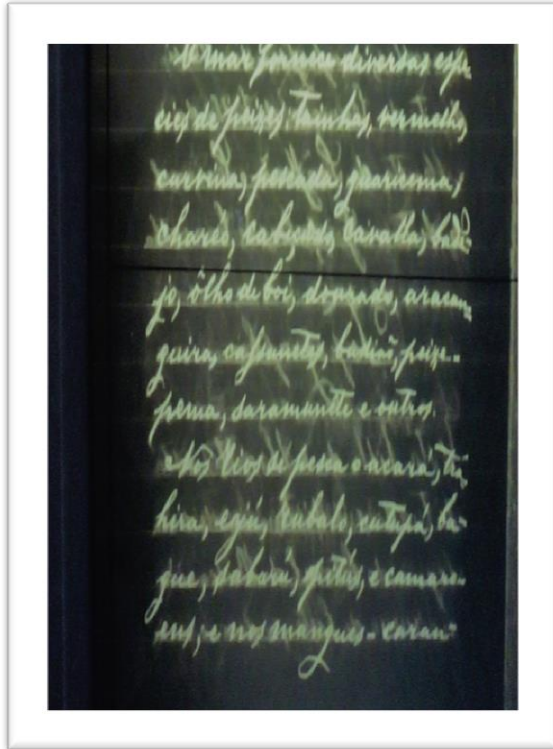 O mar fornece diversas espe-
cies de peixes: tainhas, vermelho,
curvina, pescada, guaricema,
charéo, cabeçudo, cavalla, bade-
jo, ôlho de boi, dourado, aracan-
guira, bodião, peixe-
penna, saramunête e outros.
Nos rios de pesca o acará, tra-
hira, cutupá, ba-
gre, pitús, e camaro-
ens, e nos mangues - caran-